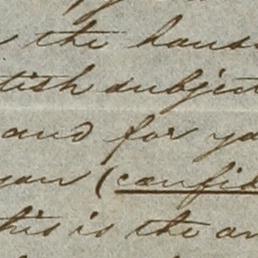 the hands
tish subject
and for yo
you (confid
this is the an